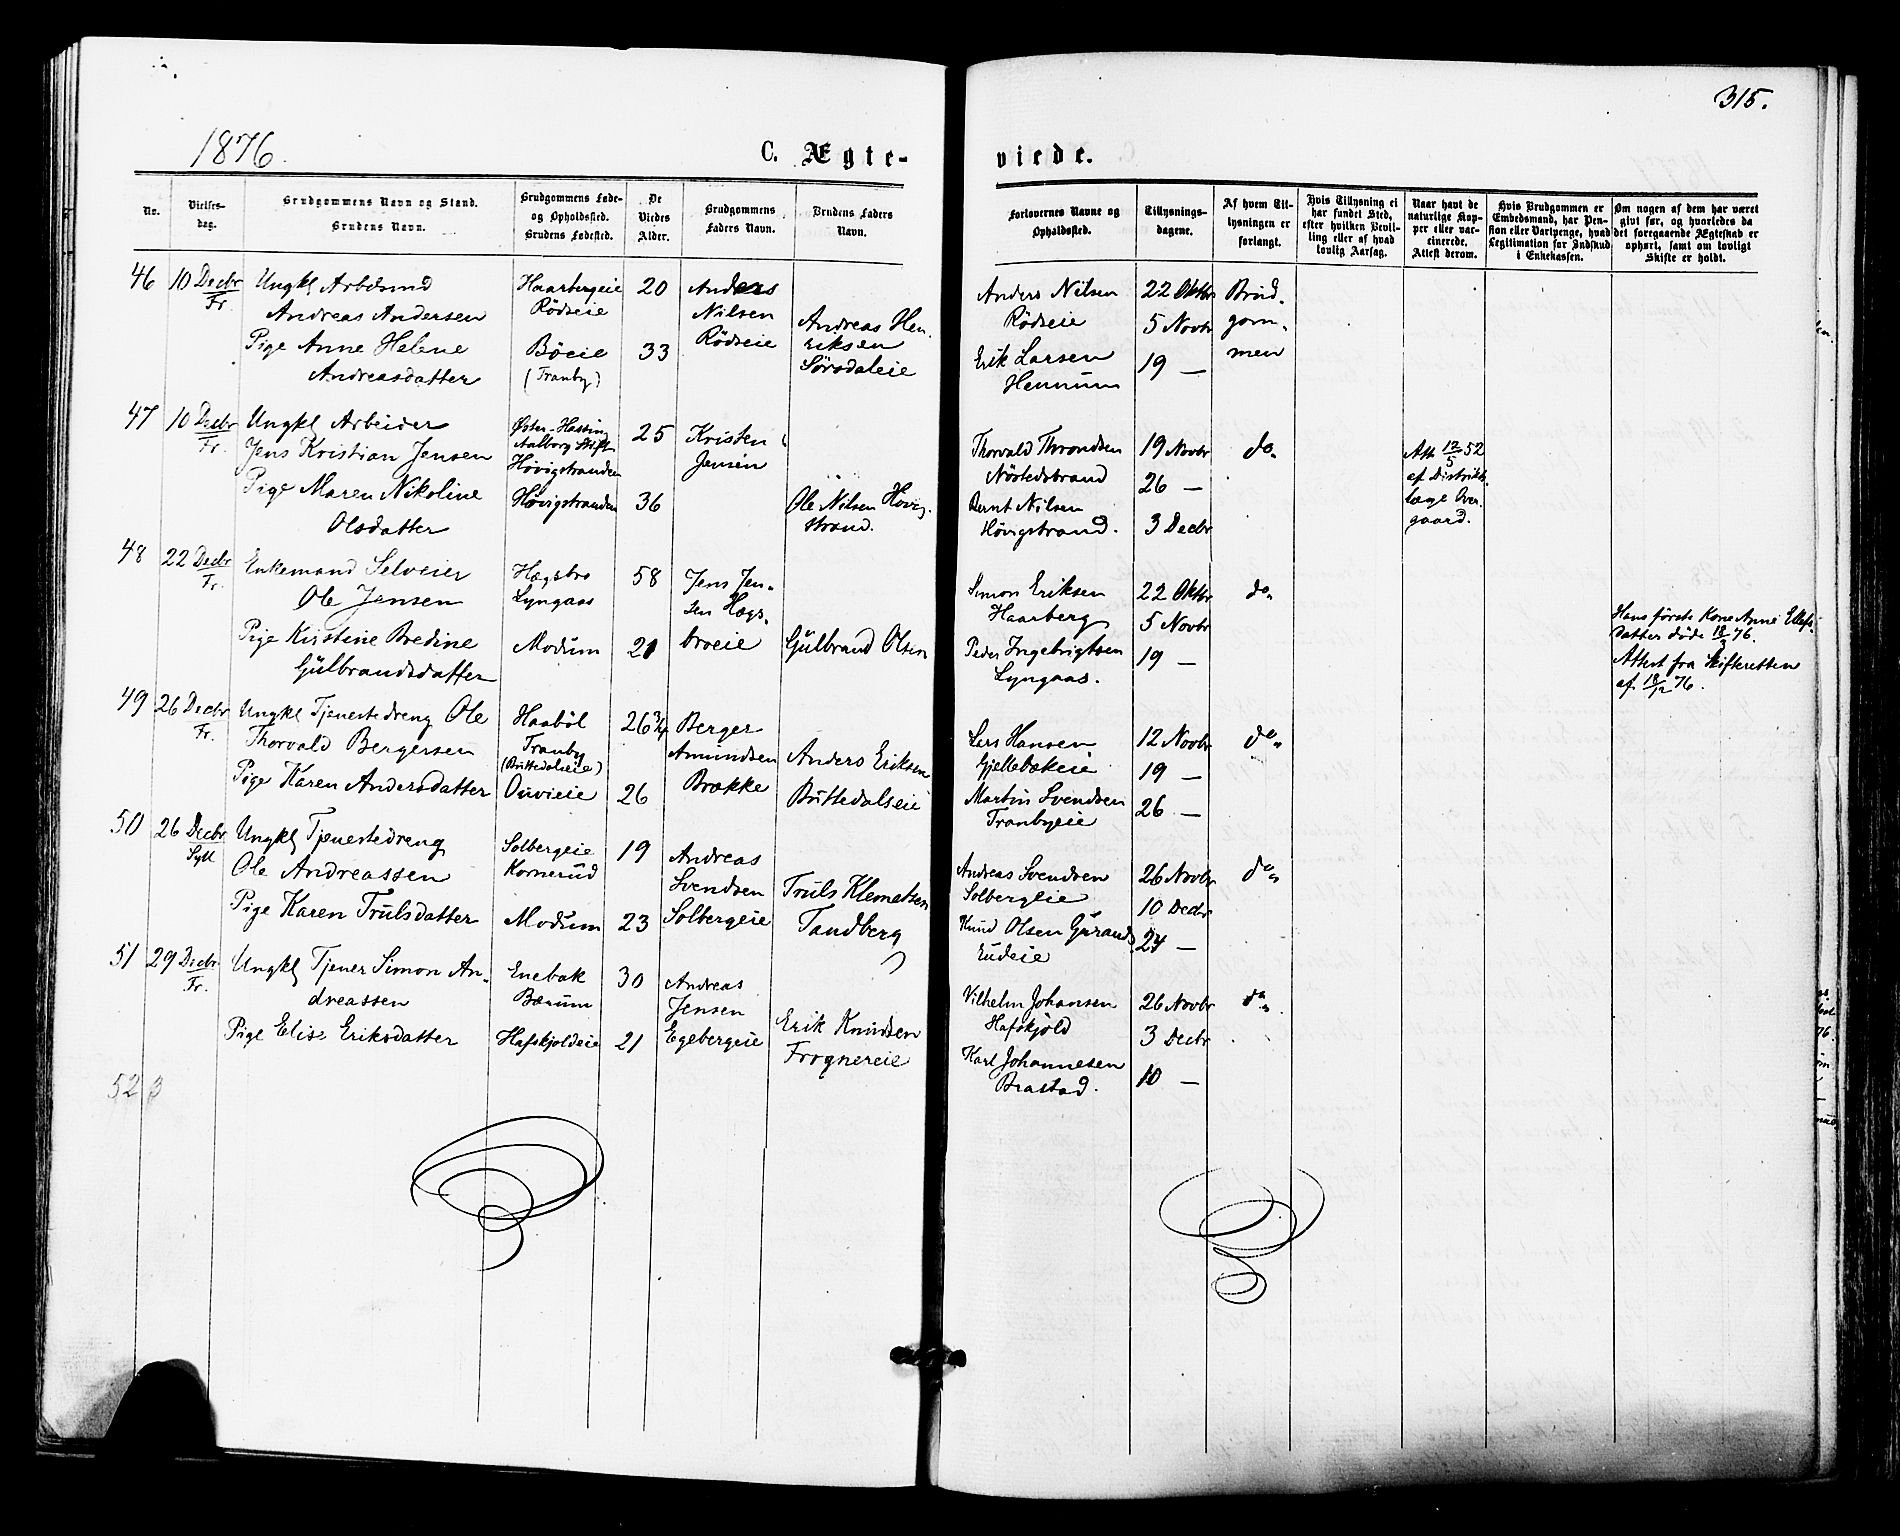 315.
1876.
C. Ægte-
viede.
No.
Vielses-
dag.
Brudgommens Navn og Stand.
Brudens Navn.
Brudgommens Føde-
og Opholdssted.
Brudens Fødested.
De
Viedes
Alder.
Brudgommens
Faders Navn.
Brudens Faders
Navn.
Forlovernes Navne og
Opholdssted.
Tillysnings-
dagene.
Af hvem Til-
lysningen er
forlangt.
Hvis Tillysning ei
har fundet Sted,
efter hvilken Bevil-
ling eller af hvad
lovlig Aarsag.
Naar havt de
naturlige Kop-
per eller vac-
cinerede.
Attest derom.
Hvis Brudgommen er
Embedsmand, har Pen-
sion eller Vartpenge, hvad
Legitimation for Indskud
i Enkekassen.
Om nogen af dem har været
givt før, og hvorledes da
det foregaaende Ægteskab er
ophørt, samt om lovligt
Skifte er holdt.
46
10 Decbr
Fr.
Ungkl Arbdsmd
Andreas Andersen
Pige Anne Helene
Andreasdatter
Haarbergeie
Rødseie
Bøeie
(Tranby)
20
33
Anders
Nilsen
Rødseie
Andreas Hen-
riksen
Sørsdaleie
Anders Nilsen
Rødseie
Erik Larsen
Hennum
22 Oktbr
5 Novbr
19 —
Brud-
gom-
men
47
10 Decbr
Fr.
Ungkl Arbeider
Jens Kristian Jensen
Pige Maren Nikoline
Olsdatter
Øster-Hassing
Aalborg Stift
Høvigstranden
Høvigstranden
25
36
Kristen
Jensen
Ole Nilsen Høvig-
strand.
Thorvald Throndsen
Nøstedstrand
Bernt Nilsen
Høvigstrand.
19 Novbr
26 —
3 Decbr
do.
Att 12/5 52
af Distrikts-
læge Over-
gaard.
48
22 Decbr
Fr.
Enkemand Selveier
Ole Jensen
Pige Kirstine Bredine
Gulbrandsdatter
Hægsbro
Lyngaas
Modum
58
21
Jens Jen-
sen Hægs-
broeie
Gulbrand Olsen
Simon Eriksen
Haarberg
Peder Ingebrigtsen
Lyngaas.
22 Oktbr
5 Novbr
19 —
do.
Hans første Kone Anne Ellefs-
datter døde 18/3 76.
Attest fra Skifteretten
af 18/12 76.
49
26 Decbr
Fr.
Ungkl Tjenestedreng Ole
Thorvald Bergersen
Pige Karen Andersdatter
Haabøl
Tranby
(Buttedalseie)
Ouvieie
26 3/4
26
Berger
Amundsen
Brække
Anders Eriksen
Buttedalseie
Lars Hansen
Gjellebækeie
Martin Svendsen
Tranbyeie
12 Novbr
19 —
26 —
do.
50
26 Decbr
Syll
Ungkl Tjenestedreng
Ole Andreassen
Pige Karen Trulsdatter
Solbergeie
Kornerud
Modum
19
23
Andreas
Svendsen
Solbergeie
Truls Klemetsen
Tandberg
Andreas Svendsen
Solbergeie
Knud Olsen
Eudeie
26 Novbr
10 Decbr
24 —
do.
51
29 Decbr
Fr.
Ungkl Tjener Simon An-
dreassen
Pige Elise Eriksdatter
Enebak
Bærum
Hafskjoldeie
30
21
Andreas
Jensen
Egebergeie
Erik Knudsen
Frognereie
Vilhelm Johansen
Hafskjold
Karl Johannesen
Brastad.
26 Novbr
3 Decbr
10 —
do.
52